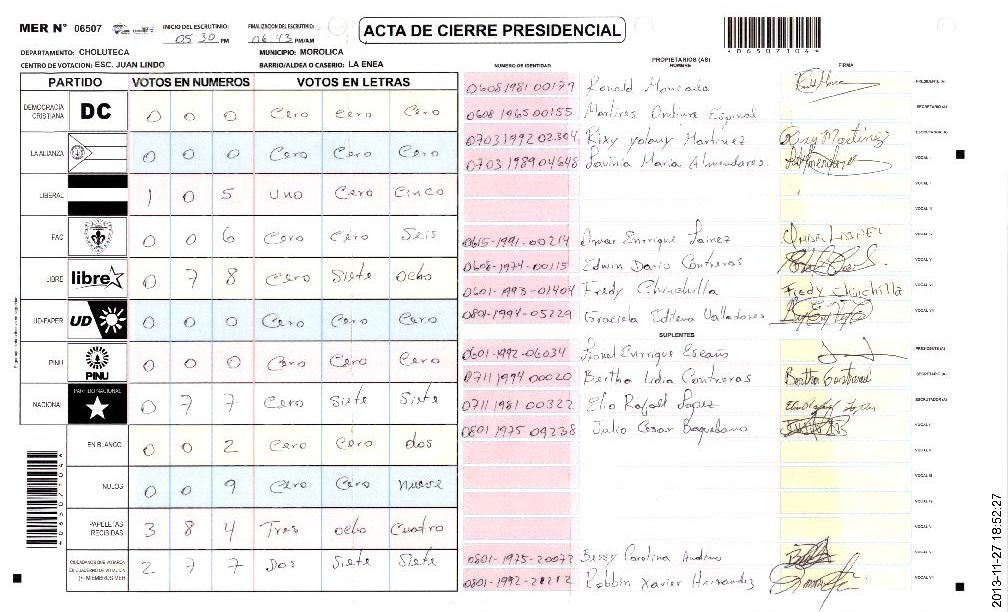 MER N° 06507
INICIO DEL ESCRUTINIO: 05:30 PM
FINALIZACION DEL ESCRUTINIO: 06:43 PM/AM
ACTA DE CIERRE PRESIDENCIAL
*06507104*
DEPARTAMENTO: CHOLUTECA
MUNICIPIO: MOROLICA
CENTRO DE VOTACION: ESC. JUAN LINDO
BARRIO/ALDEA O CASERIO: LA ENEA
PARTIDO VOTOS EN NUMEROS VOTOS EN LETRAS
DEMOCRACIA CRISTIANA DC 0 0 0 Cero Cero Cero
LA ALIANZA 0 0 0 Cero Cero Cero
LIBERAL 1 0 5 Uno Cero Cinco
PAC 0 0 6 Cero Cero Seis
LIBRE libre 0 7 8 Cero Siete Ocho
UD-FAPER UD 0 0 0 Cero Cero Cero
PINU PINU 0 0 0 Cero Cero Cero
NACIONAL PARTIDO NACIONAL 0 7 7 Cero Siete Siete
EN BLANCO 0 0 2 Cero Cero dos
NULOS 0 0 9 Cero Cero nueve
PAPELETAS RECIBIDAS 3 8 4 Tres ocho Cuatro
CIUDADANOS QUE VOTARON EN CUADERNO DE VOTACION (+ MIEMBROS MER) 2 7 7 Dos Siete Siete
*06507104*
NUMERO DE IDENTIDAD PROPIETARIOS (AS) NOMBRE FIRMA
0608 1981 00179 Ronald Moncada PRESIDENTE (A)
0608 1965 00155 Martires Espinal SECRETARIO (A)
0703 1992 02304 Kixy yolany Martinez Kixy Martinez ESCRUTADOR (A)
0703 1989 04648 Lavinia Maria Almendares VOCAL I
VOCAL II
VOCAL III
0615-1991-00214 Omar Enrique Lainez VOCAL IV
0608-1974-00115 Edwin Dario Contreras VOCAL V
0601-1993-01404 Fredy Chinchilla Fredy Chinchilla VOCAL VI
0801-1994-05229 Graciela Edilena Valladores VOCAL VII
SUPLENTES
0601-1992-06034 Lionel Enrrique Escaño PRESIDENTE (A)
0711 1994 00020 Bertha Lidia Contreras Bertha Contreras SECRETARIO (A)
0711 1981 00322 Elio Rafael Lopez ESCRUTADOR (A)
0801 1975 09238 Julio Cesar Baquedano VOCAL I
VOCAL II
VOCAL III
VOCAL IV
VOCAL V
0801-1975-20073 Bessy Carolina Andino VOCAL VI
0801-1992-21212 Robbin Xavier Hernandez VOCAL VII
2013-11-27 18:52:27